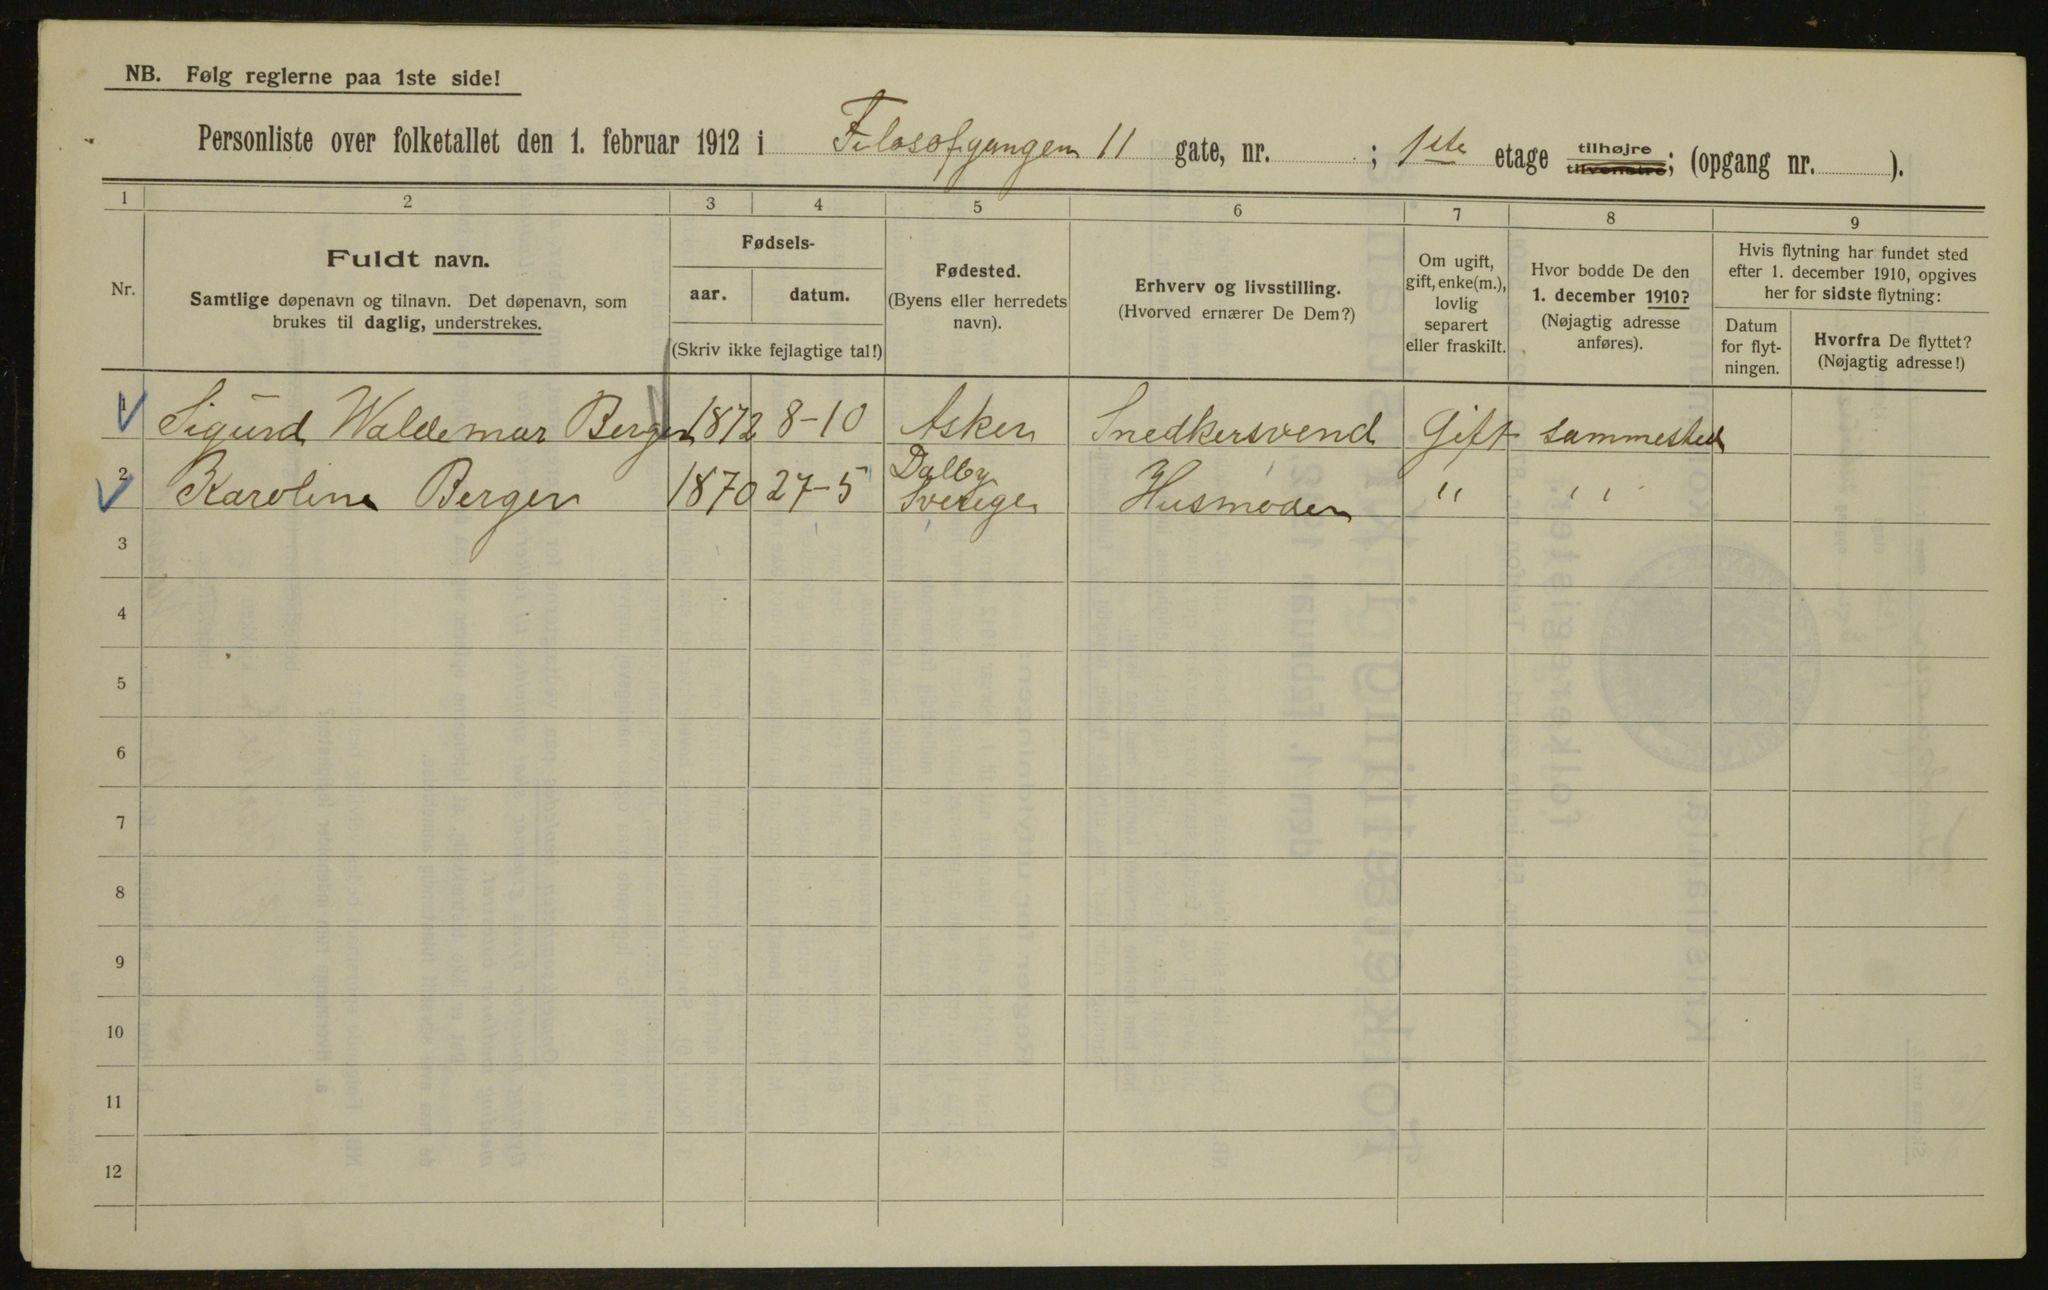 NB. Følg reglerne paa 1ste side!
Personliste over folketallet den 1. februar 1912 i Filosofgangen 11 gate, nr. ; 1ste etage tilhøjre tilvenstre; (opgang nr. ).
1 2 3 4 5 6 7 8 9
Nr.
Fuldt navn.
Samtlige døpenavn og tilnavn. Det døpenavn, som
brukes til daglig, understrekes.
Fødsels-
aar. datum.
(Skriv ikke fejlagtige tal!)
Fødested.
(Byens eller herredets
navn).
Erhverv og livsstilling.
(Hvorved ernærer De Dem?)
Om ugift,
gift, enke(m.),
lovlig
separert
eller fraskilt.
Hvor bodde De den
1. december 1910?
(Nøjagtig adresse
anføres).
Hvis flytning har fundet sted
efter 1. december 1910, opgives
her for sidste flytning:
Datum
for flyt-
ningen.
Hvorfra De flyttet?
(Nøjagtig adresse!)
1 Sigurd Waldemar Berger 1872 8-10 Asker Snedkersvend Gift sammested
2 Karoline Berger 1870 27-5 Dalby Sverige Husmoder " "
3
4
5
6
7
8
9
10
11
12